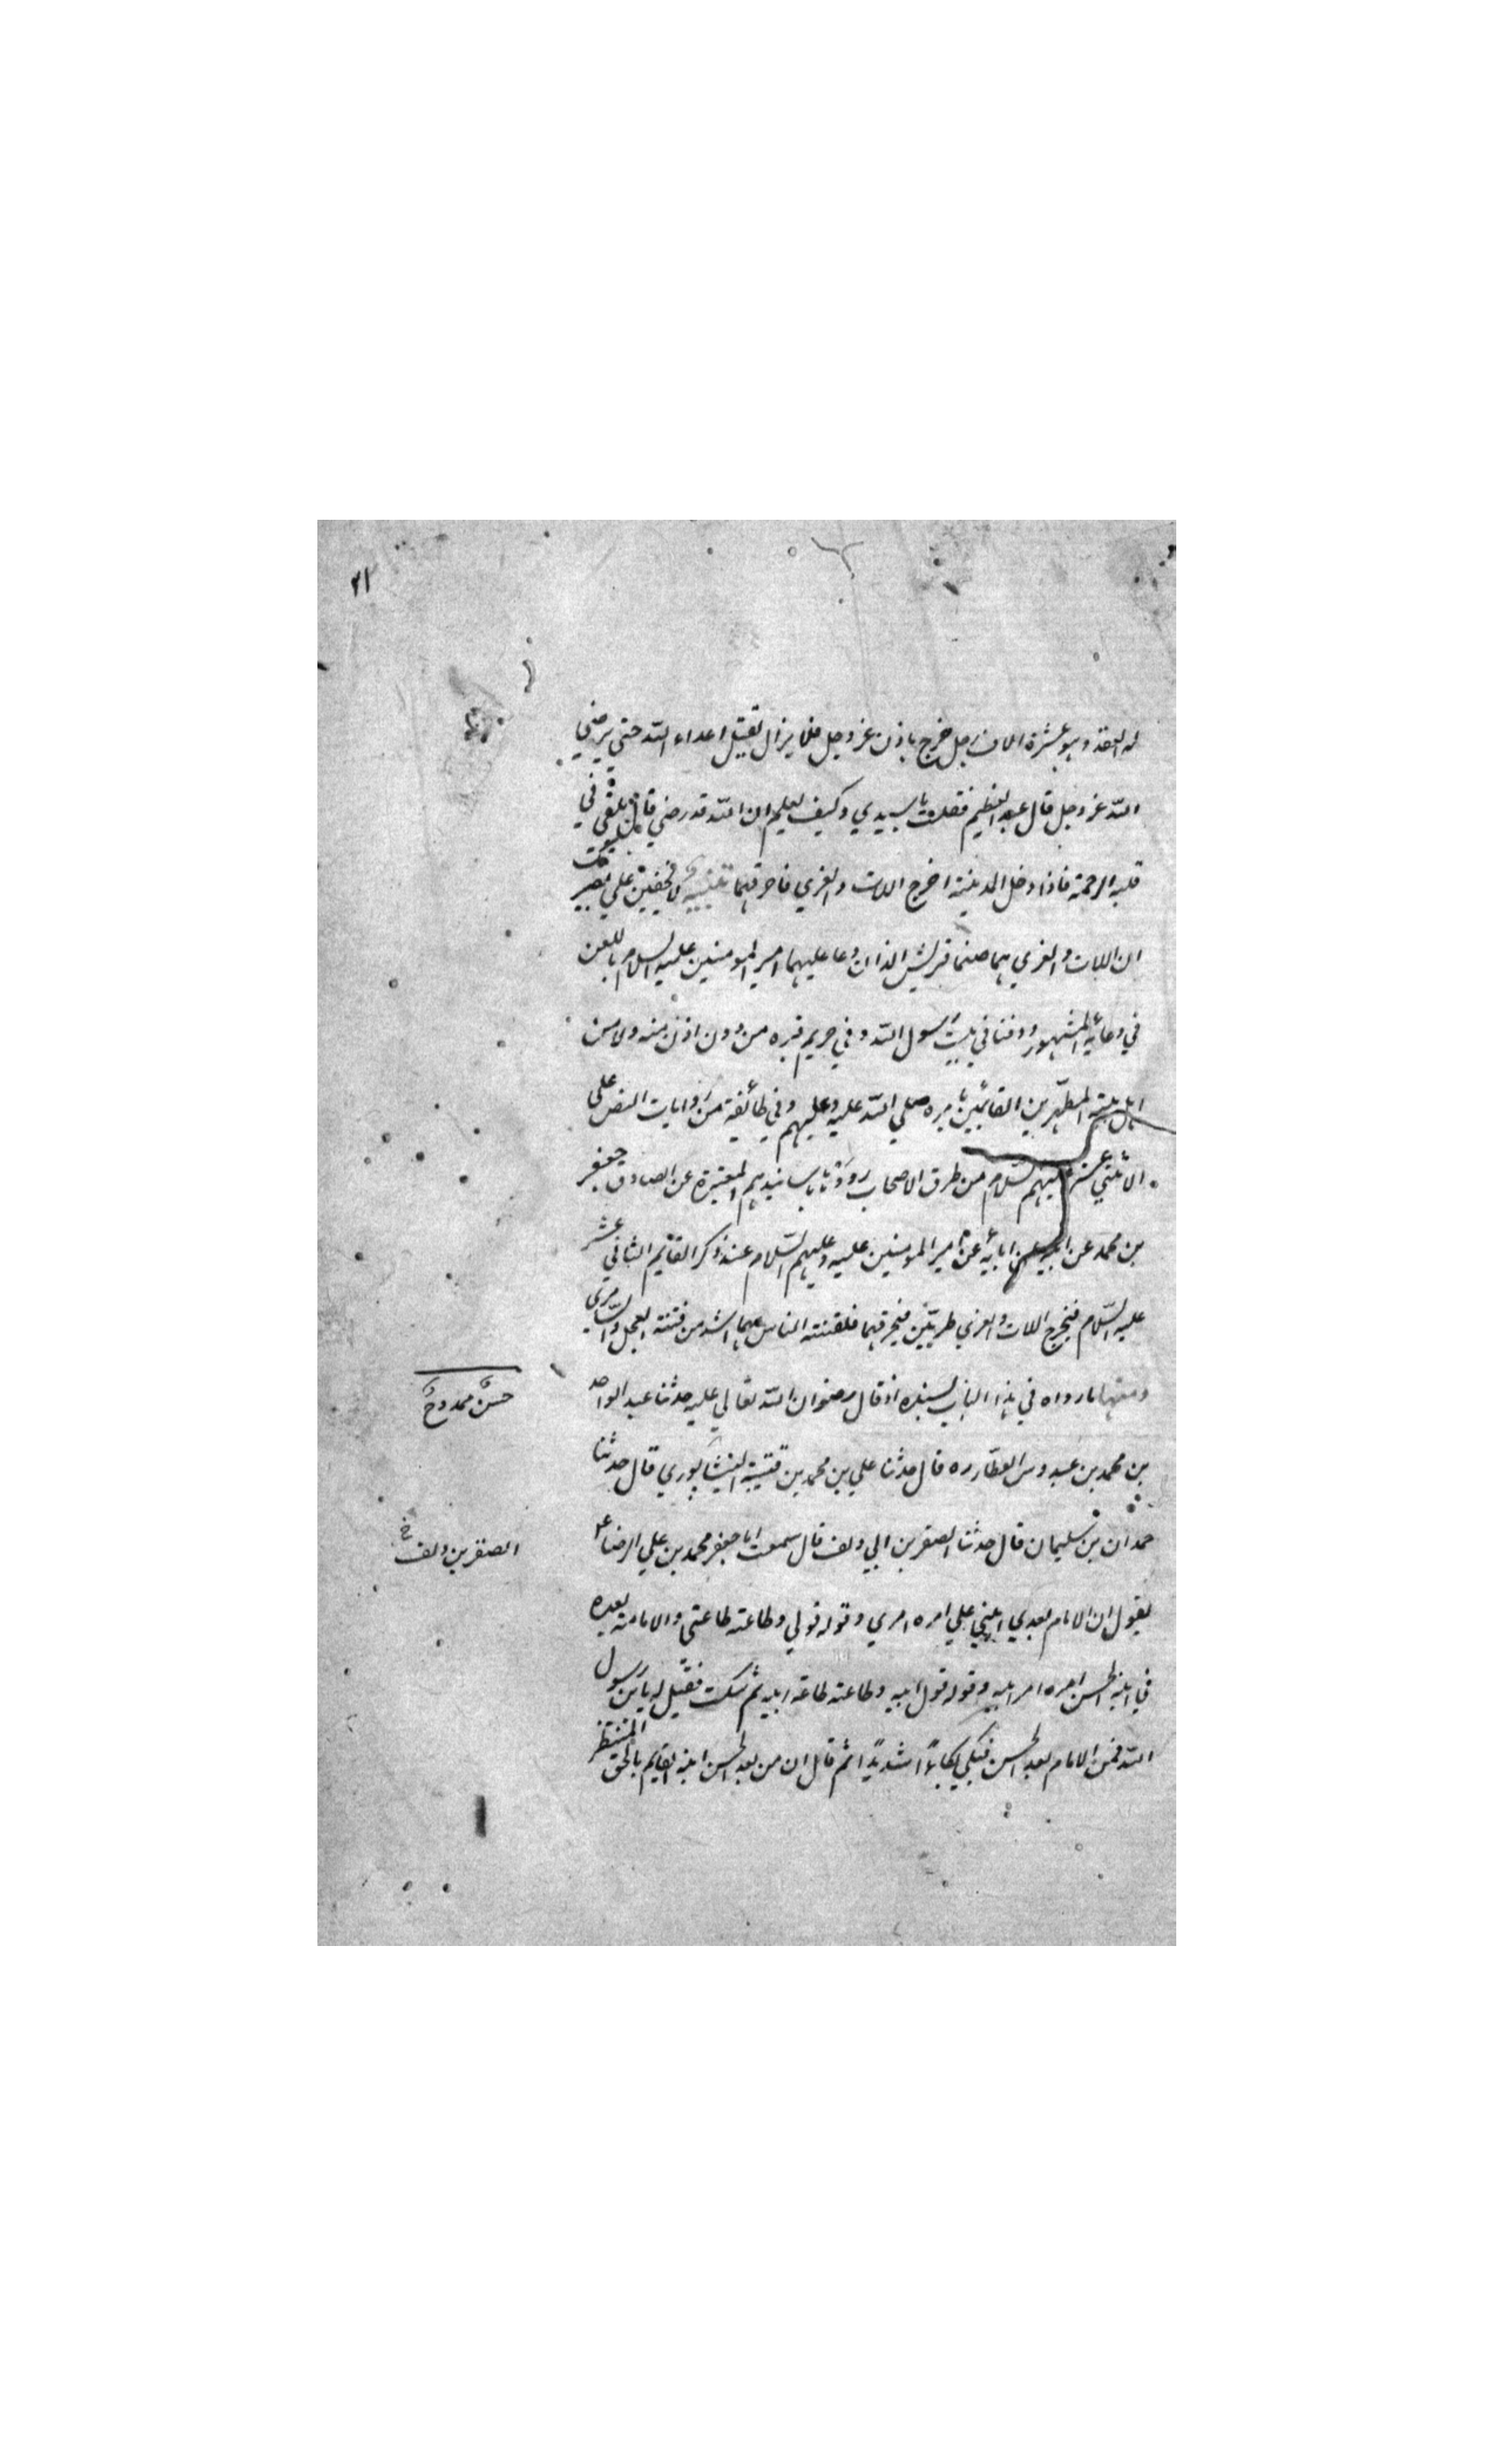 ٢١
له العقد وهو عشرة الاف رجل خرج باذن عز وجل فلا يزال يقتل اعداء الله حتى يرضي
الله عز وجل قال عبد العظيم فقلت يا سيدي وكيف يعلم ان الله قد رضي قال يلقي في
قلبه الرحمة فاذا دخل المدينة اخرج اللات والعزي فاحرقهما تنبيه لا يخفين علي بصير
ان اللات والعزي هما صنما قريش الذان دعا عليهما امير المومنين عليه السلام باللعن
في دعائه المشهور ودفنا في بيت رسول الله وفي حريم قبره من دون اذن منه ولا من
اهل بيته المطهرين القائمين بامره صلي الله عليه وعليهم وفي طائفة من روايات النص علي
الاثني عشر عليهم السلام من طرق الاصحاب رووه باسانيدهم المعتبرة عن الصادق جعفر
بن محمد عن ابيه عن ابايه عن امير المومنين عليه وعليهم السلام عند ذكر القايم الثاني عشر
عليه السلام فيخرج اللات والعزي طريين فيحرقهما فلفتنة الناس بهما اشد من فتنة العجل والسامري
ومنها ما رواه في هذا الباب بسنده اذ قال رضوان الله تعالي عليه حدثنا عبد الواحد
حسن ممدوح
بن محمد بن عبدوس العطار ره قال حدثنا علي بن محمد بن قتيبة النيشابوري قال حدثنا
حمدان بن سليمان قال حدثنا الصقر بن ابي دلف قال سمعت ابا جعفر محمد بن علي الرضا ع
الصقر بن دلف خ
يقول ان الامام بعدي ابني علي امره امري وقوله قولي وطاعته طاعتي والامامة بعده
في ابنه الحسن امره امر ابيه وقوله قول ابيه وطاعته طاعة ابيه ثم سكت فقيل له يا بن رسول
الله فمن الامام بعد الحسن فبكي بكاءً شديدًا ثم قال ان من بعد الحسن ابنه القايم بالحق المنتظر